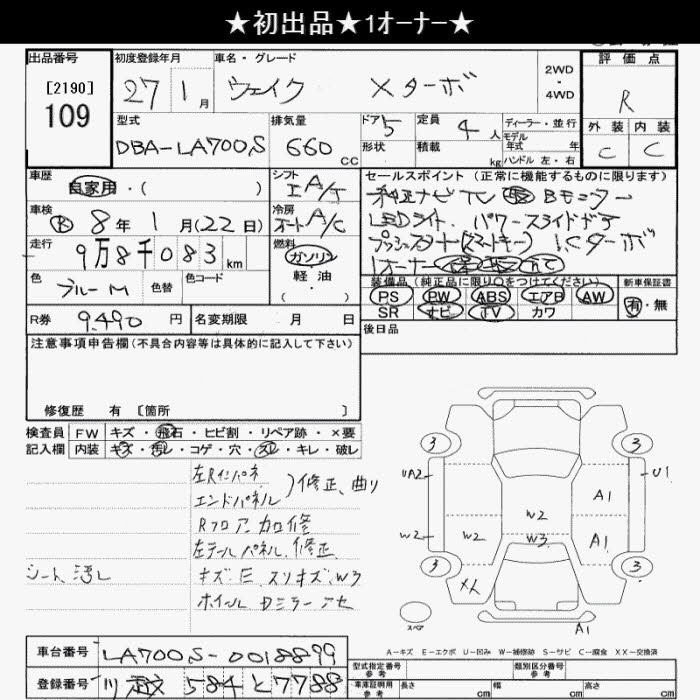 ★初出品★1オーナー★
出品番号
[2190]
109
初度登録年月
27 1月
車名・グレード
ウェイク Xターボ
2WD
・
4WD
評価点
R
外装 内装
C C
型式
DBA-LA700S
排気量
660 cc
ドア 5
形状
定員 4人
積載 kg
ディーラー・並行
モデル
年式 年
ハンドル 左・右
車歴
自家用・( )
シフト
エアコン
冷房
A/C
セールスポイント (正常に機能するものに限ります)
純正ナビ TV Bモニター
LEDライト、パワースライドドア
プッシュスタート(スマートキー) I.Cターボ
1オーナー
車検
8年 1月(22日)
走行
9万8千083km
燃料
ガソリン
軽油
・( )
色
ブルーM
色替
色コード
装備品 (純正品に限り○をつけてください)
PS PW ABS エアB AW
SR ナビ TV カワ
新車保証書
有・無
R券 9,490円
名変期限 月 日
後日品
注意事項申告欄(不具合内容等は具体的に記入して下さい)
修復歴 有 [箇所 ]
検査員 FW キズ・飛石・ヒビ割・リペア跡・×要
記入欄 内装 キズ・汚レ・コゲ・穴・スレ・キレ・破レ
左Rインパネ
エンドパネル 修正、曲り
Rフロア 加修
左テールパネル、修正
シート汚レ
キズE、スリキズ、W3
3 3
UA2 U1
A1
W2
W2 W2 W3 A1
3 3
XX
スペア
A1
A-キズ E-エクボ U-凹み W-補修跡 S-サビ C-腐食 XX-交換済
車台番号 LA700S-0018899
型式指定番号
参考
類別区分番号
参考
登録番号 584 と 7788
車庫証明用
参考
長さ cm 幅 cm 高さ cm